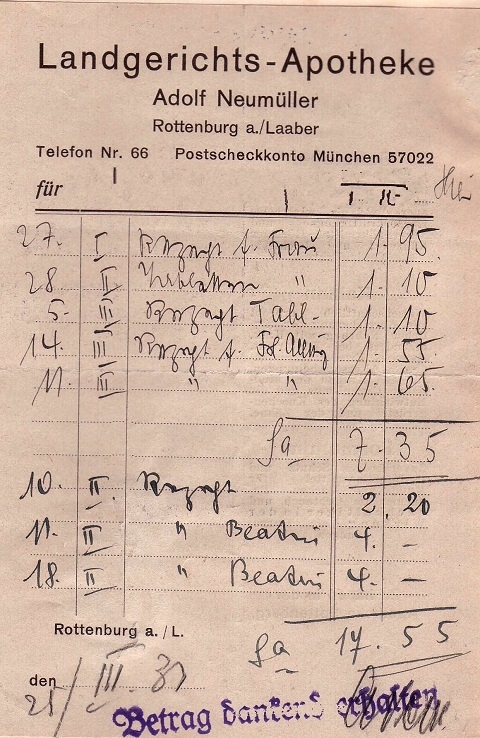 Landgerichts-Apotheke
Adolf Neumüller
Rottenburg a./Laaber
Telefon Nr. 66 Postscheckkonto München 57022
für
27. I Rezept f. Frau 1. 95
28. II " 1. 10
5. III Rezept Tabl. 1. 10
14. III Rezept f. 1. 55
11. III " " 1. 65
Sa 7. 35
10. II. Rezept 2. 20
11. II " 4. –
18. II " 4. –
Rottenburg a. / L.
Sa 17. 55
den 21/III.
Betrag dankend erhalten